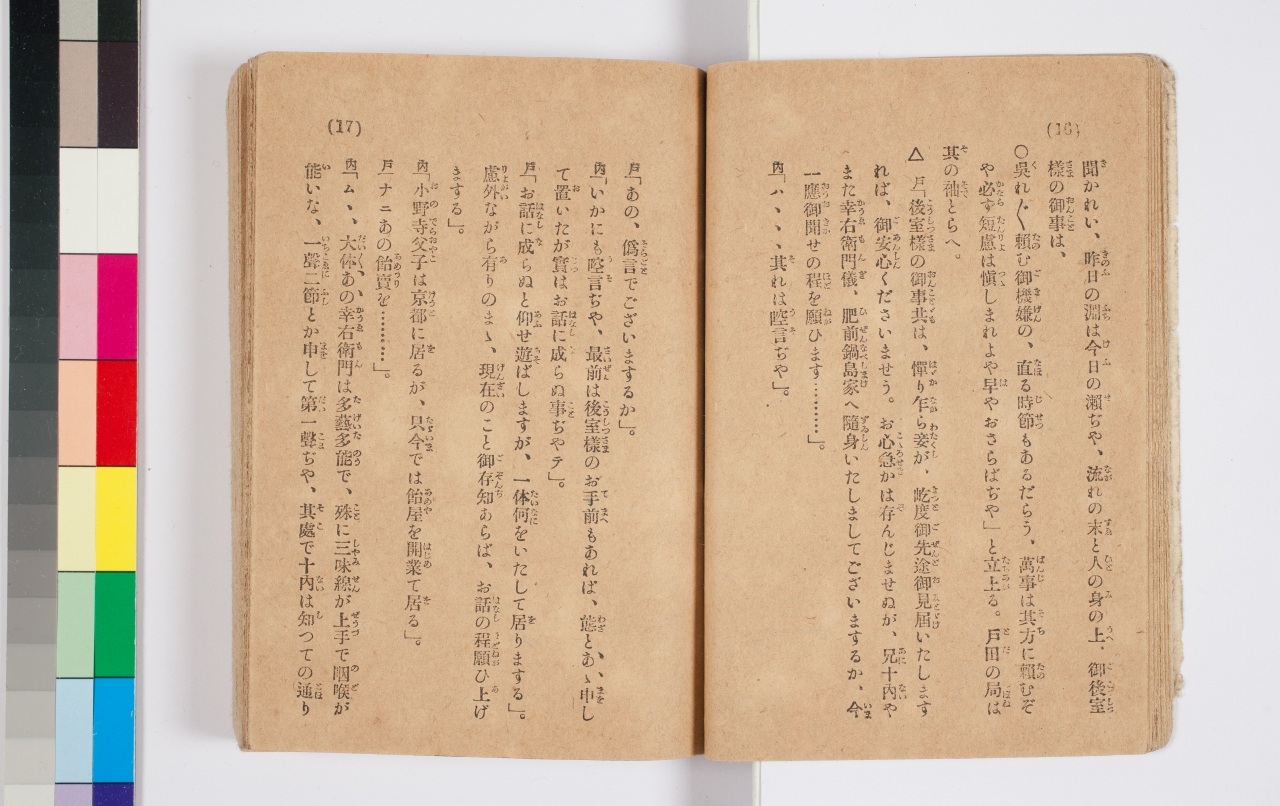 (16)
聞かれい、昨日の淵は今日の瀬ぢや、流れの末と人の身の上、御後室
樣の御事は、
○吳れ〲賴む御機嫌の、直る時節もあるだらう、萬事は其方に賴むぞ
や必ず短慮は愼しまれよや早やおさらばぢや」と立上る。戸田の局は
其の袖とらへ。
△戸「後室樣の御事共は、憚り乍ら妾が、屹度御先途御見屆いたします
れば、御安心くださいませう。お心急かは存んじませぬが、兄十內や
また幸右衞門儀、肥前鍋島家へ隨身いたしましてございまするか、今
一應御聞せの程を願ひます………」。
內「ハヽヽヽ其れは噓言ぢや」。
(17)
戸「あの、僞言でございまするか」。
內「いかにも噓言ぢや、最前は後室樣のお手前もあれば、態とあゝ申し
て置いたが實はお話に成らぬ事ぢやテ」。
戸「お話に成らぬと仰せ遊ばしますが、一体何をいたして居りまする」。
慮外ながら有りのまゝ、現在のこと御存知あらば、お話の程願ひ上げ
まする」。
內「小野寺父子は京都に居るが、只今では飴屋を開業て居る」。
戸「ナニあの飴賣を………」。
內「ムヽ、大体あの幸右衞門は多藝多能で、殊に三味線が上手で咽喉が
能いな、一聲二節とか申して第一聲ぢや、其處で十內は知つての通り